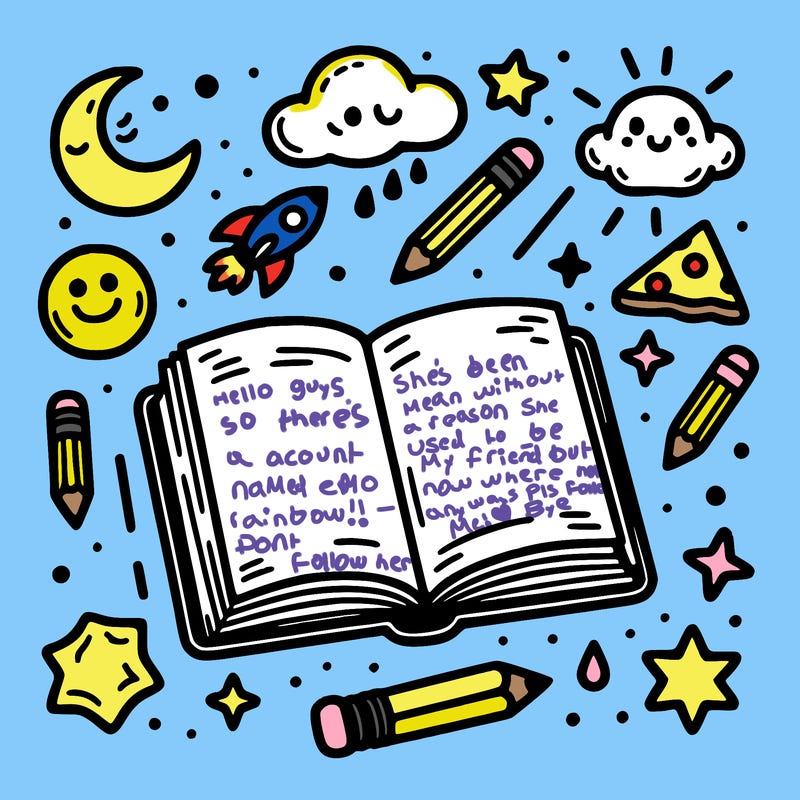 Hello guys
so there's
a acount
named emo
rainbow!! -
Dont
Follow her
She's been
Mean without
a reason She
used to be
My friend but
now where not
any ways Pls Follow
Me!♥ Bye